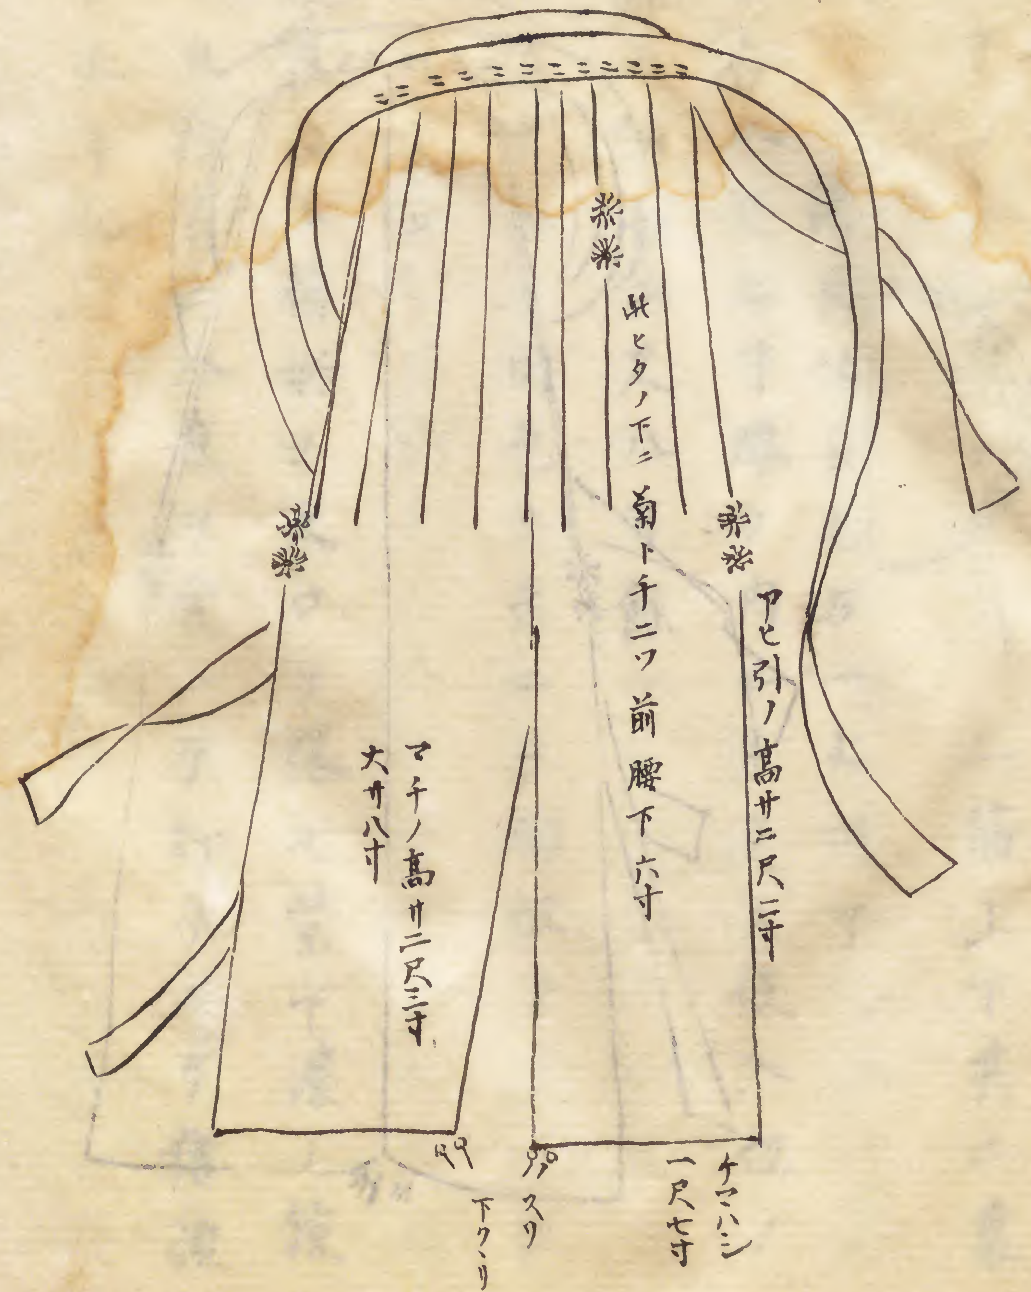 アヒ引ノ高サ二尺二寸
此ヒタノ下ニ菊トチ二ツ前腰下六寸
マチノ高サ二尺三寸
大サ八寸
ケマハシ
一尺七寸
スソ
下クヽリ